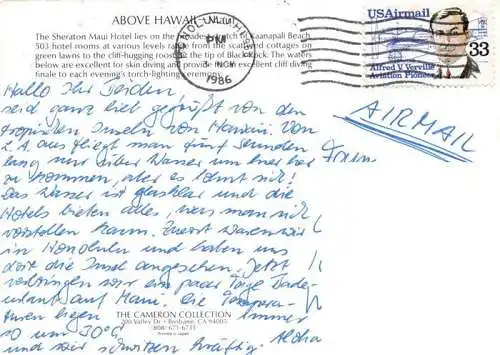 ABOVE HAWAII
The Sheraton Maui Hotel lies on the Kaanapali Beach
503 hotel rooms at various levels from the scattered cottages on
green lawns to the cliff-hugging top of Blackrock. The waters
below are excellent for skin diving and provide an excellent cliff diving
finale to each evening's torch-lighting ceremony.
HONOLULU
PM
3 NOV
1986
USAirmail
33
Alfred V. Verville
Aviation Pioneer
AIRMAIL
Hallo Ihr Beiden
seid ganz lieb gegrüßt von den
Inseln von Hawaii. Von
L.A. aus fliegt man fünf Stunden
lang nur über Wasser um hier her
zu kommen, aber es lohnt sich!
Das Wasser ist glasklar und die
Hotels bieten alles, was man sich
vorstellen kann. Zuerst waren wir
in Honolulu und haben uns
dort die Insel angesehen. Jetzt
verbringen wir ein paar Tage Bade-
urlaub auf Maui. Die Tempera-
turen liegen immer
so um 30°C
und wir schwitzen kräftig. Aloha
THE CAMERON COLLECTION
200 Valley Dr. • Brisbane, CA 94005
Printed in Japan